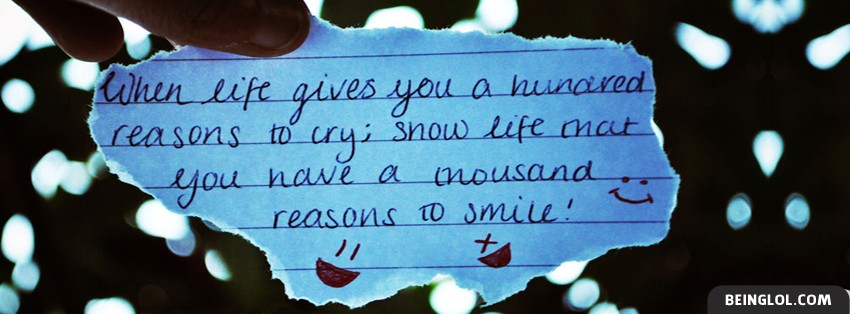 When life gives you a hundred
reasons to cry; show life that
you have a thousand
reasons to smile!
BEINGLOL.COM